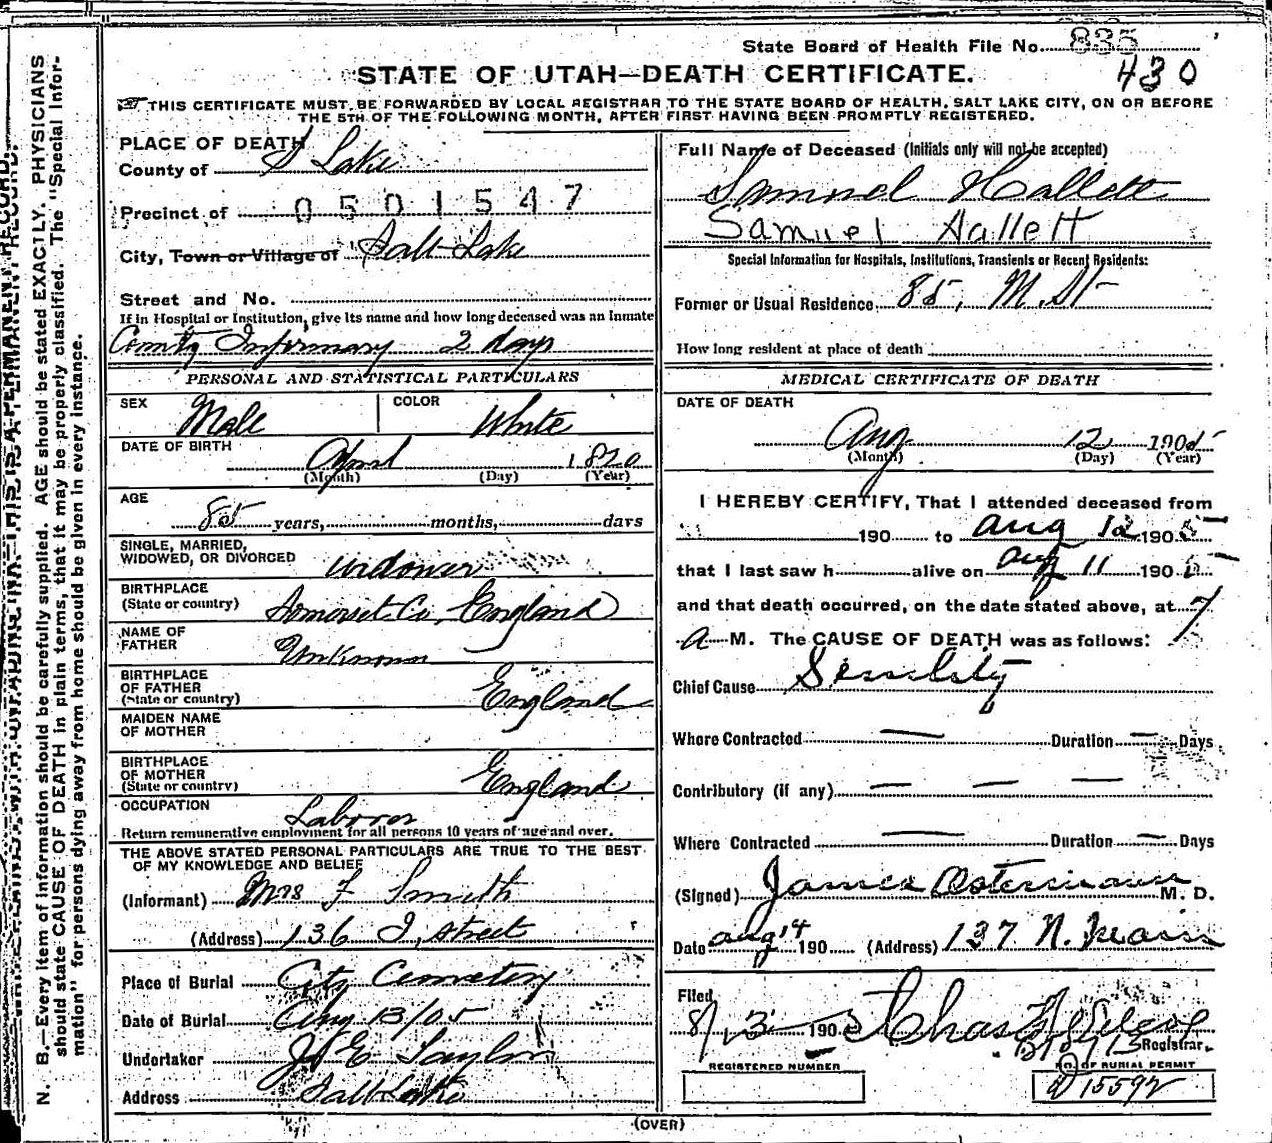 State Board of Health File No. 835
430
STATE OF UTAH—DEATH CERTIFICATE.
THIS CERTIFICATE MUST BE FORWARDED BY LOCAL REGISTRAR TO THE STATE BOARD OF HEALTH, SALT LAKE CITY, ON OR BEFORE
THE 5TH OF THE FOLLOWING MONTH, AFTER FIRST HAVING BEEN PROMPTLY REGISTERED.
N. B.—Every item of information should be carefully supplied. AGE should be stated EXACTLY. PHYSICIANS
should state CAUSE OF DEATH in plain terms, that it may be properly classified. The "Special Infor-
mation" for persons dying away from home should be given in every instance.
PLACE OF DEATH
County of S Lake
Precinct of 0501547
City, Town or Village of Salt Lake
Street and No.
If in Hospital or Institution, give its name and how long deceased was an Inmate
County Infirmary 2 days
PERSONAL AND STATISTICAL PARTICULARS
SEX Male COLOR White
DATE OF BIRTH April 1820
(Month) (Day) (Year)
AGE
85 years, months, days
SINGLE, MARRIED,
WIDOWED, OR DIVORCED widower
BIRTHPLACE
(State or country) Somerset Co, England
NAME OF
FATHER Unknown
BIRTHPLACE
OF FATHER
(State or country) England
MAIDEN NAME
OF MOTHER
BIRTHPLACE
OF MOTHER
(State or country) England
OCCUPATION Laborer
Return remunerative employment for all persons 10 years of age and over.
THE ABOVE STATED PERSONAL PARTICULARS ARE TRUE TO THE BEST
OF MY KNOWLEDGE AND BELIEF
(Informant) Mrs F Smith
(Address) 136 I, street
Place of Burial City Cemetery
Date of Burial Aug 13/05
Undertaker Jos E Taylor
Address Salt Lake
Full Name of Deceased (Initials only will not be accepted)
Samuel Hallett
Samuel Hallett
Special Information for Hospitals, Institutions, Transients or Recent Residents:
Former or Usual Residence 85, M. St
How long resident at place of death
MEDICAL CERTIFICATE OF DEATH
DATE OF DEATH
Aug 12 1905
(Month) (Day) (Year)
I HEREBY CERTIFY, That I attended deceased from
190 to Aug 12 1905
that I last saw h alive on Aug 11 1905
and that death occurred, on the date stated above, at 7
a M. The CAUSE OF DEATH was as follows:
Chief Cause Senility
Where Contracted — Duration — Days
Contributory (if any) — — —
Where Contracted — Duration — Days
(Signed) James Ostermann M. D.
Date Aug 14 190 (Address) 137 N. Main
Filed
8/13 1905 Chas
Registrar.
REGISTERED NUMBER
NO. OF BURIAL PERMIT
D 15592
(OVER)